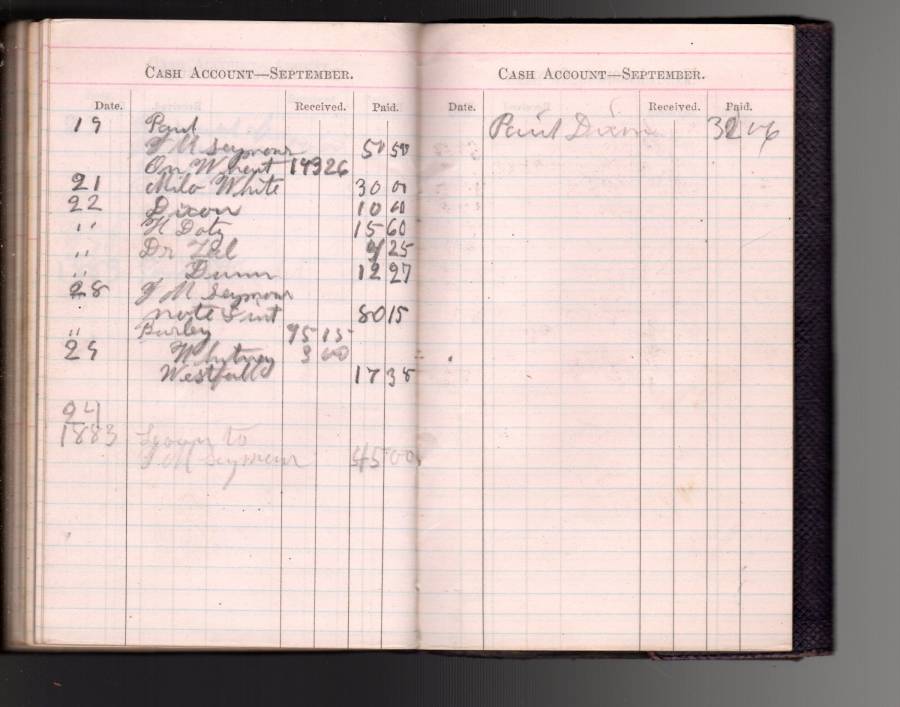 CASH ACCOUNT—SEPTEMBER.
Date. Received. Paid.
19 Paid
F M Seymour 50 50
On Wheat 143 26
21 Milo White 30 00
22 Dixon 10 00
" H Doty 15 60
" Dr 4 25
" Dunn 12 27
28 F M Seymour
note & int 80 15
" Barley 95 15
29 Whitney 3 00
Westfall 17 38
24
1883 Loan to
F M Seymour 45 00
CASH ACCOUNT—SEPTEMBER.
Date. Received. Paid.
Paid Dixon